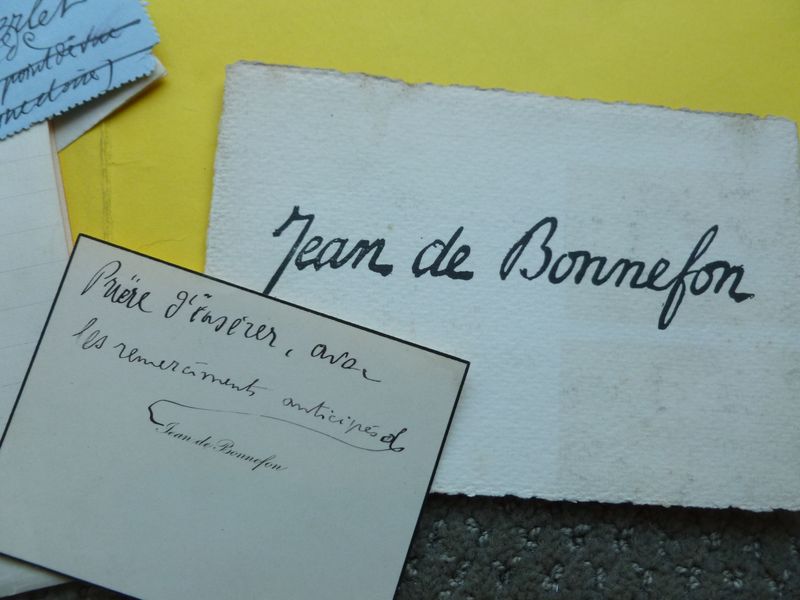 point de vue
Jean de Bonnefon
Prière d'insérer, avec
les remerciments anticipés de
Jean de Bonnefon